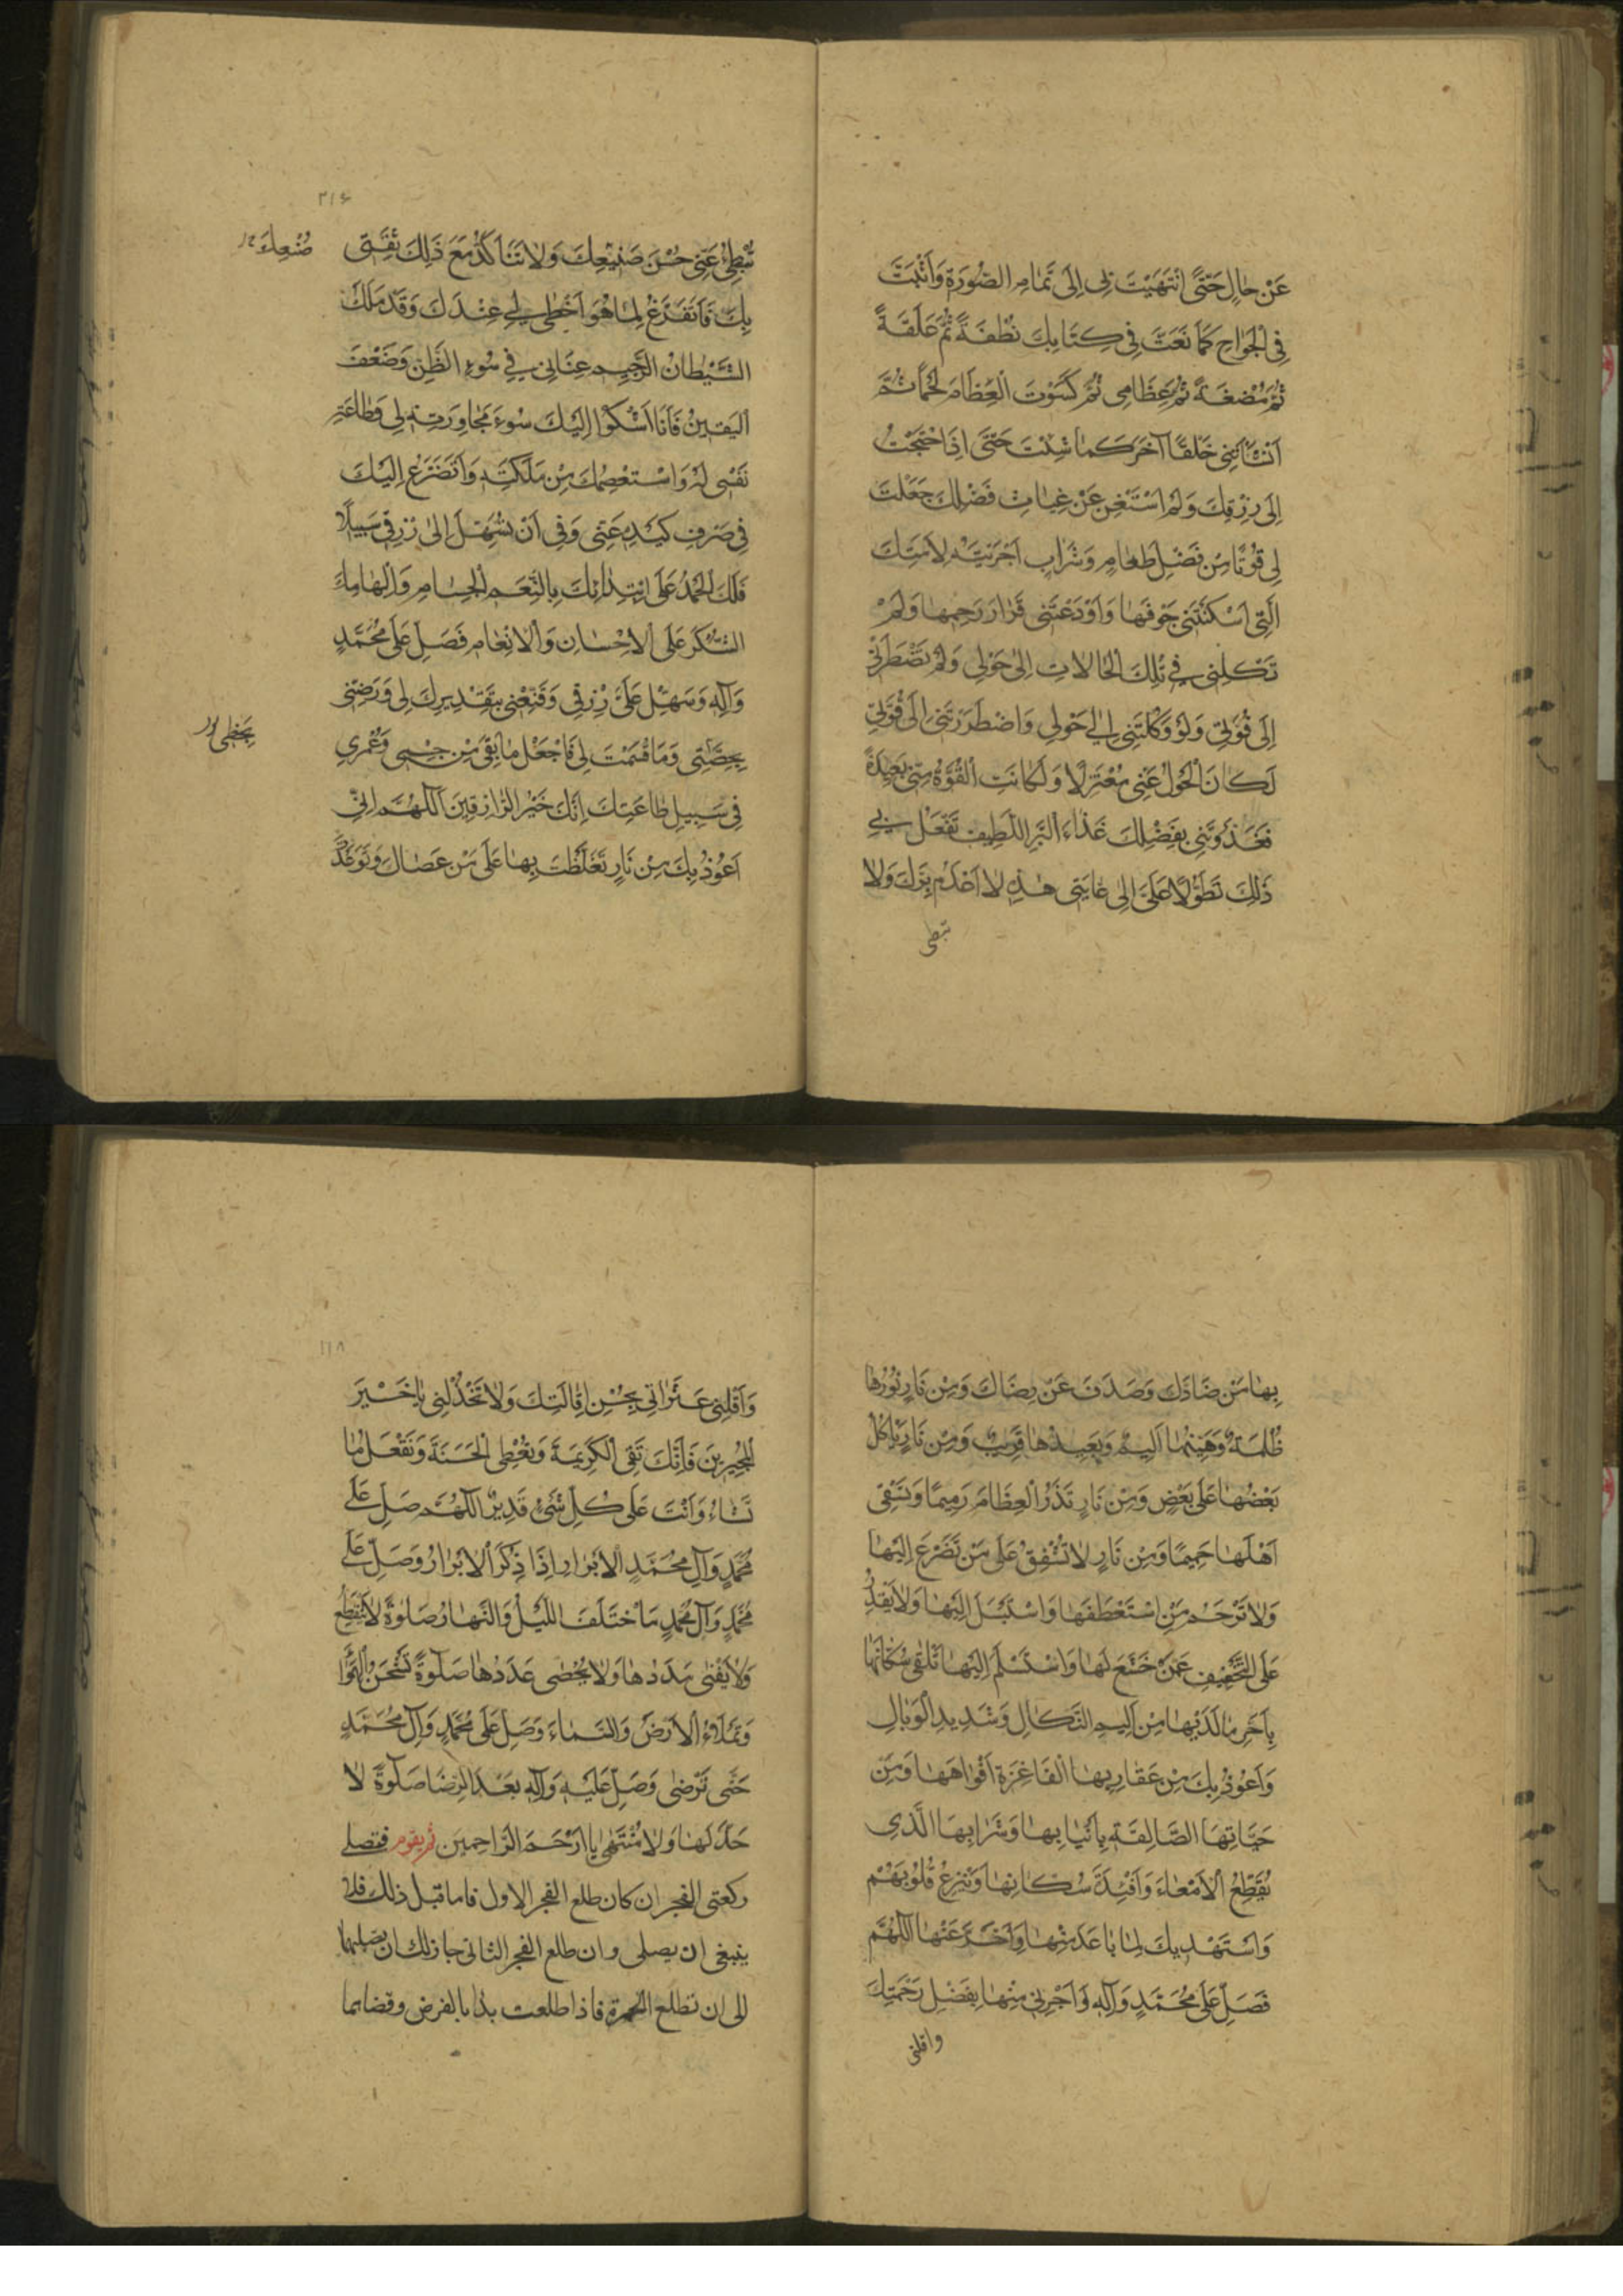 عَنْ حَالٍ حَتَّى انْتَهَيْتَ بِي إِلَى تَمَامِ الصُّورَةِ وَأَثْبَتَّ
فِي الْجَوَارِحَ كَمَا نَعَتَّ فِي كِتَابِكَ نُطْفَةً ثُمَّ عَلَقَةً
ثُمَّ مُضْغَةً ثُمَّ عِظَامِى ثُمَّ كَسَوْتَ الْعِظَامَ لَحْمًا ثُمَّ
أَنْشَأْتَنِي خَلْقًا آخَرَ كَمَا شِئْتَ حَتَّى إِذَا احْتَجْتُ
إِلَى رِزْقِكَ وَلَمْ أَسْتَغْنِ عَنْ غِيَاثِ فَضْلِكَ جَعَلْتَ
لِي قُوتًا مِنْ فَضْلِ طَعَامٍ وَشَرَابٍ أَجْرَيْتَهُ لِأَمَتِكَ
الَّتِي أَسْكَنْتَنِي جَوْفَهَا وَأَوْدَعْتَنِي قَرَارَ رَحِمِهَا وَلَمْ
تَكِلْنِي فِي تِلْكَ الْحَالَاتِ إِلَى حَوْلِي وَلَمْ تَضْطَرَّنِي
إِلَى قُوَّتِي وَلَوْ وَكَلْتَنِي إِلَى حَوْلِي وَاضْطَرَرْتَنِي إِلَى قُوَّتِي
لَكَانَ الْحَوْلُ عَنِّي مُعْتَزِلًا وَلَكَانَتِ الْقُوَّةُ مِنِّي بَعِيدَةً
فَغَذَوْتَنِي بِفَضْلِكَ غَذَاءَ الْبَرِّ اللَّطِيفِ تَفْعَلُ بِي
ذَلِكَ تَطَوُّلًا عَلَيَّ إِلَى غَايَتِي هَذِهِ لَا أَعْدَمُ بِرَّكَ وَلَا
تبطى
٣١۶
تُبْطِئُ عَنِّي حُسْنَ صَنِيعِكَ وَلَا تَتَأَكَّدُ مَعَ ذَلِكَ ثِقَتِي
صُنْعِكَ
بِكَ فَأَتَفَرَّغَ لِمَا هُوَ أَحْظَى لِي عِنْدَكَ وَقَدْ مَلَكَ
الشَّيْطَانُ الرَّجِيمِ عِنَانِي فِي سُوءِ الظَّنِّ وَضَعْفَ
الْيَقِينِ فَأَنَا أَشْكُوا إِلَيْكَ سُوءَ مُجَاوَرَتِهِ لِي وَطَاعَةِ
نَفْسِي لَهُ وَاسْتَعْصِمُكَ مِنْ مَلَكَتِهِ وَأَتَضَرَّعُ إِلَيْكَ
فِي صَرْفِ كَيْدِهِ عَنِّي وَفِي أَنْ تُسَهِّلَ إِلَى رِزْقِي سَبِيلًا
فَلَكَ الْحَمْدُ عَلَى ابْتِدَائِكَ بِالنِّعَمِ الْجِسَامِ وَإِلْهَامِكَ
الشُّكْرَ عَلَى الْإِحْسَانِ وَالْإِنْعَامِ فَصَلِّ عَلَى مُحَمَّدٍ
وَآلِهِ وَسَهِّلْ عَلَيَّ رِزْقِي وَقَنِّعْنِي بِتَقْدِيرِكَ لِي وَرَضِّنِي
بِحِصَّتِي وَمَا قَسَمْتَ لِي فَاجْعَلْ مَا بَقِيَ مِنْ جِسْمِي وَعُمْرِي
فِي سَبِيلِ طَاعَتِكَ إِنَّكَ خَيْرُ الرَّازِقِينَ اللَّهُمَّ إِنِّي
أَعُوذُ بِكَ مِنْ نَارٍ تَغَلَّظْتَ بِهَا عَلَى مَنْ عَصَاكَ وَتَوَعَّدْتَ
بِهَا مَنْ ضَادَّكَ وَصَدَفَ عَنْ رِضَاكَ وَمِنْ نَارٍ نُورُهَا
ظُلْمَةٌ وَهَيِّنُهَا أَلِيمٌ وَبَعِيدُهَا قَرِيبٌ وَمِنْ نَارٍ يَأْكُلُ
بَعْضُهَا عَلَى بَعْضٍ وَمِنْ نَارٍ تَذَرُ الْعِظَامَ رَمِيمًا وَتَسْقِي
أَهْلَهَا حَمِيمًا وَمِنْ نَارٍ لَا تُشْفِقُ عَلَى مَنْ تَضَرَّعَ إِلَيْهَا
وَلَا تَرْحَمُ مَنِ اسْتَعْطَفَهَا وَاسْتَبْسَلَ إِلَيْهَا وَلَا يَقْدِرُ
عَلَى التَّخْفِيفِ عَمَّنْ خَشَعَ لَهَا وَاسْتَسْلَمَ إِلَيْهَا تَلْقَى سُكَّانَهَا
بِأَحَرِّ مَا لَدَيْهَا مِنْ أَلِيمِ النَّكَالِ وَشَدِيدِ الْوَبَالِ
وَأَعُوذُ بِكَ مِنْ عَقَارِبِهَا الْفَاغِرَةِ أَفْوَاهَهَا وَمِنْ
حَيَّاتِهَا الصَّالِقَةِ بِأَنْيَابِهَا وَشَرَابِهَا الَّذِي
يُقَطِّعُ الْأَمْعَاءَ وَأَفْئِدَةَ سُكَّانِهَا وَيَنْزِعُ قُلُوبَهُمْ
وَأَسْتَهْدِيكَ لِمَا بَاعَدَ مِنْهَا وَأَخَّرَ عَنْهَا اللَّهُمَّ
فَصَلِّ عَلَى مُحَمَّدٍ وَآلِهِ وَأَجِرْنِي مِنْهَا بِفَضْلِ رَحْمَتِكَ
واقلنى
١١٨
وَأَقِلْنِي عَثَرَاتِي بِحُسْنِ إِقَالَتِكَ وَلَا تَخْذُلْنِي يَا خَيْرَ
الْمُجِيرِينَ فَإِنَّكَ تَقِي الْكَرِيهَةَ وَتُعْطِي الْحَسَنَةَ وَتَفْعَلُ مَا
تَشَاءُ وَأَنْتَ عَلَى كُلِّ شَيْءٍ قَدِيرٌ اللَّهُمَّ صَلِّ عَلَى
مُحَمَّدٍ وَآلِ مُحَمَّدٍ الْأَبْرَارِ إِذَا ذُكِرَ الْأَبْرَارُ وَصَلِّ عَلَى
مُحَمَّدٍ وَآلِ مُحَمَّدٍ مَا اخْتَلَفَ اللَّيْلُ وَالنَّهَارُ صَلَوٰةً لَا يَنْقَطِعُ
وَلَا يَفْنَى مَدَدُهَا وَلَا يُحْصَى عَدَدُهَا صَلَوٰةً تَشْحَنُ الْهَوَاءَ
وَتَمْلَأُ الْأَرْضَ وَالسَّمَاءَ وَصَلِّ عَلَى مُحَمَّدٍ وَآلِ مُحَمَّدٍ
حَتَّى تَرْضَى وَصَلِّ عَلَيْهِ وَآلِهِ بَعْدَ الرِّضَا صَلَوٰةً لَا
حَدَّ لَهَا وَلَا مُنْتَهَى يَا أَرْحَمَ الرَّاحِمِينَ ثم يقوم فتصلى
ركعتى الفجر ان كان طلع الفجر الاول فاما قبل ذلك فلا
ينبغى ان يصلى وان طلع الفجر الثانى جاز لك ان يصليهما
الى ان تطلع الحمرة فاذا طلعت بدا بالفرض وقضاهما